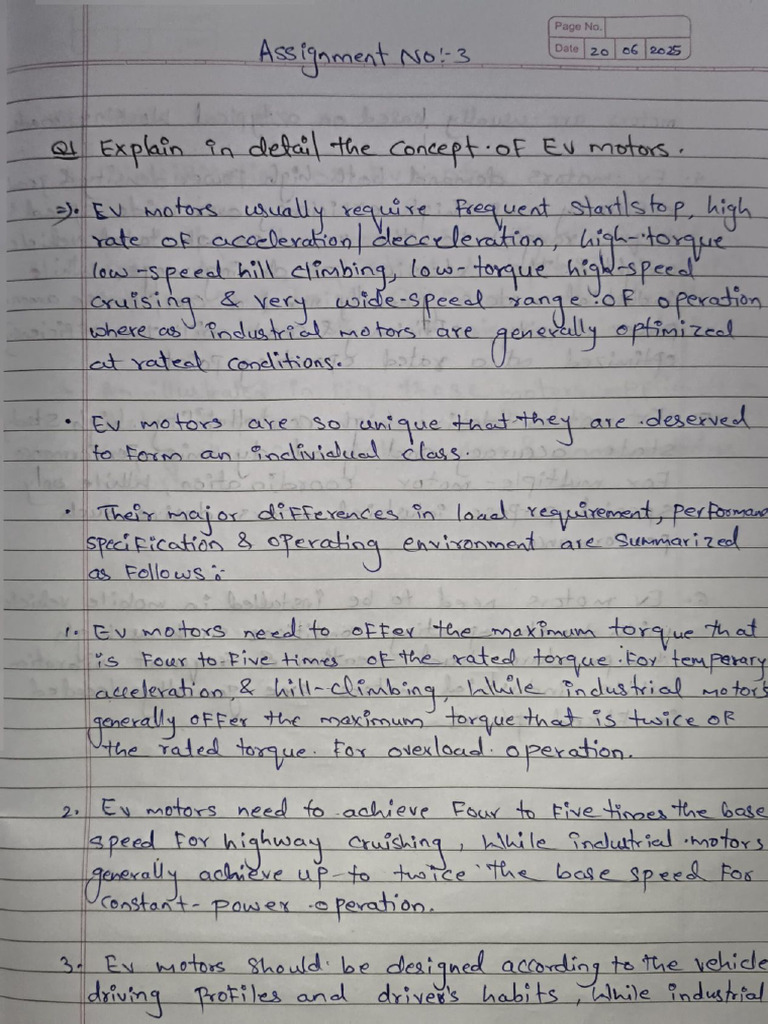 Page No.
Date 20 06 2025
Assignment No:-3
Q1 Explain in detail the concept of EV motors.
=>. EV motors usually require frequent start/stop, high
rate of acceleration/decceleration, high-torque
low-speed hill climbing, low-torque high-speed
cruising & very wide-speed range of operation
where as industrial motors are generally optimized
at rated conditions.
• EV motors are so unique that they are deserved
to form an individual class.
• Their major differences in load requirement, performanc
specification & operating environment are summarized
as follows:-
1. EV motors need to offer the maximum torque that
is four to five times of the rated torque for temperary
acceleration & hill-climbing, while industrial motors
generally offer the maximum torque that is twice of
the rated torque for overload operation.
2. EV motors need to achieve four to five times the base
speed for highway cruishing, while industrial motors
generally achieve up-to twice the base speed for
constant-power operation.
3. EV motors should be designed according to the vehicle
driving profiles and driver's habits, while industrial